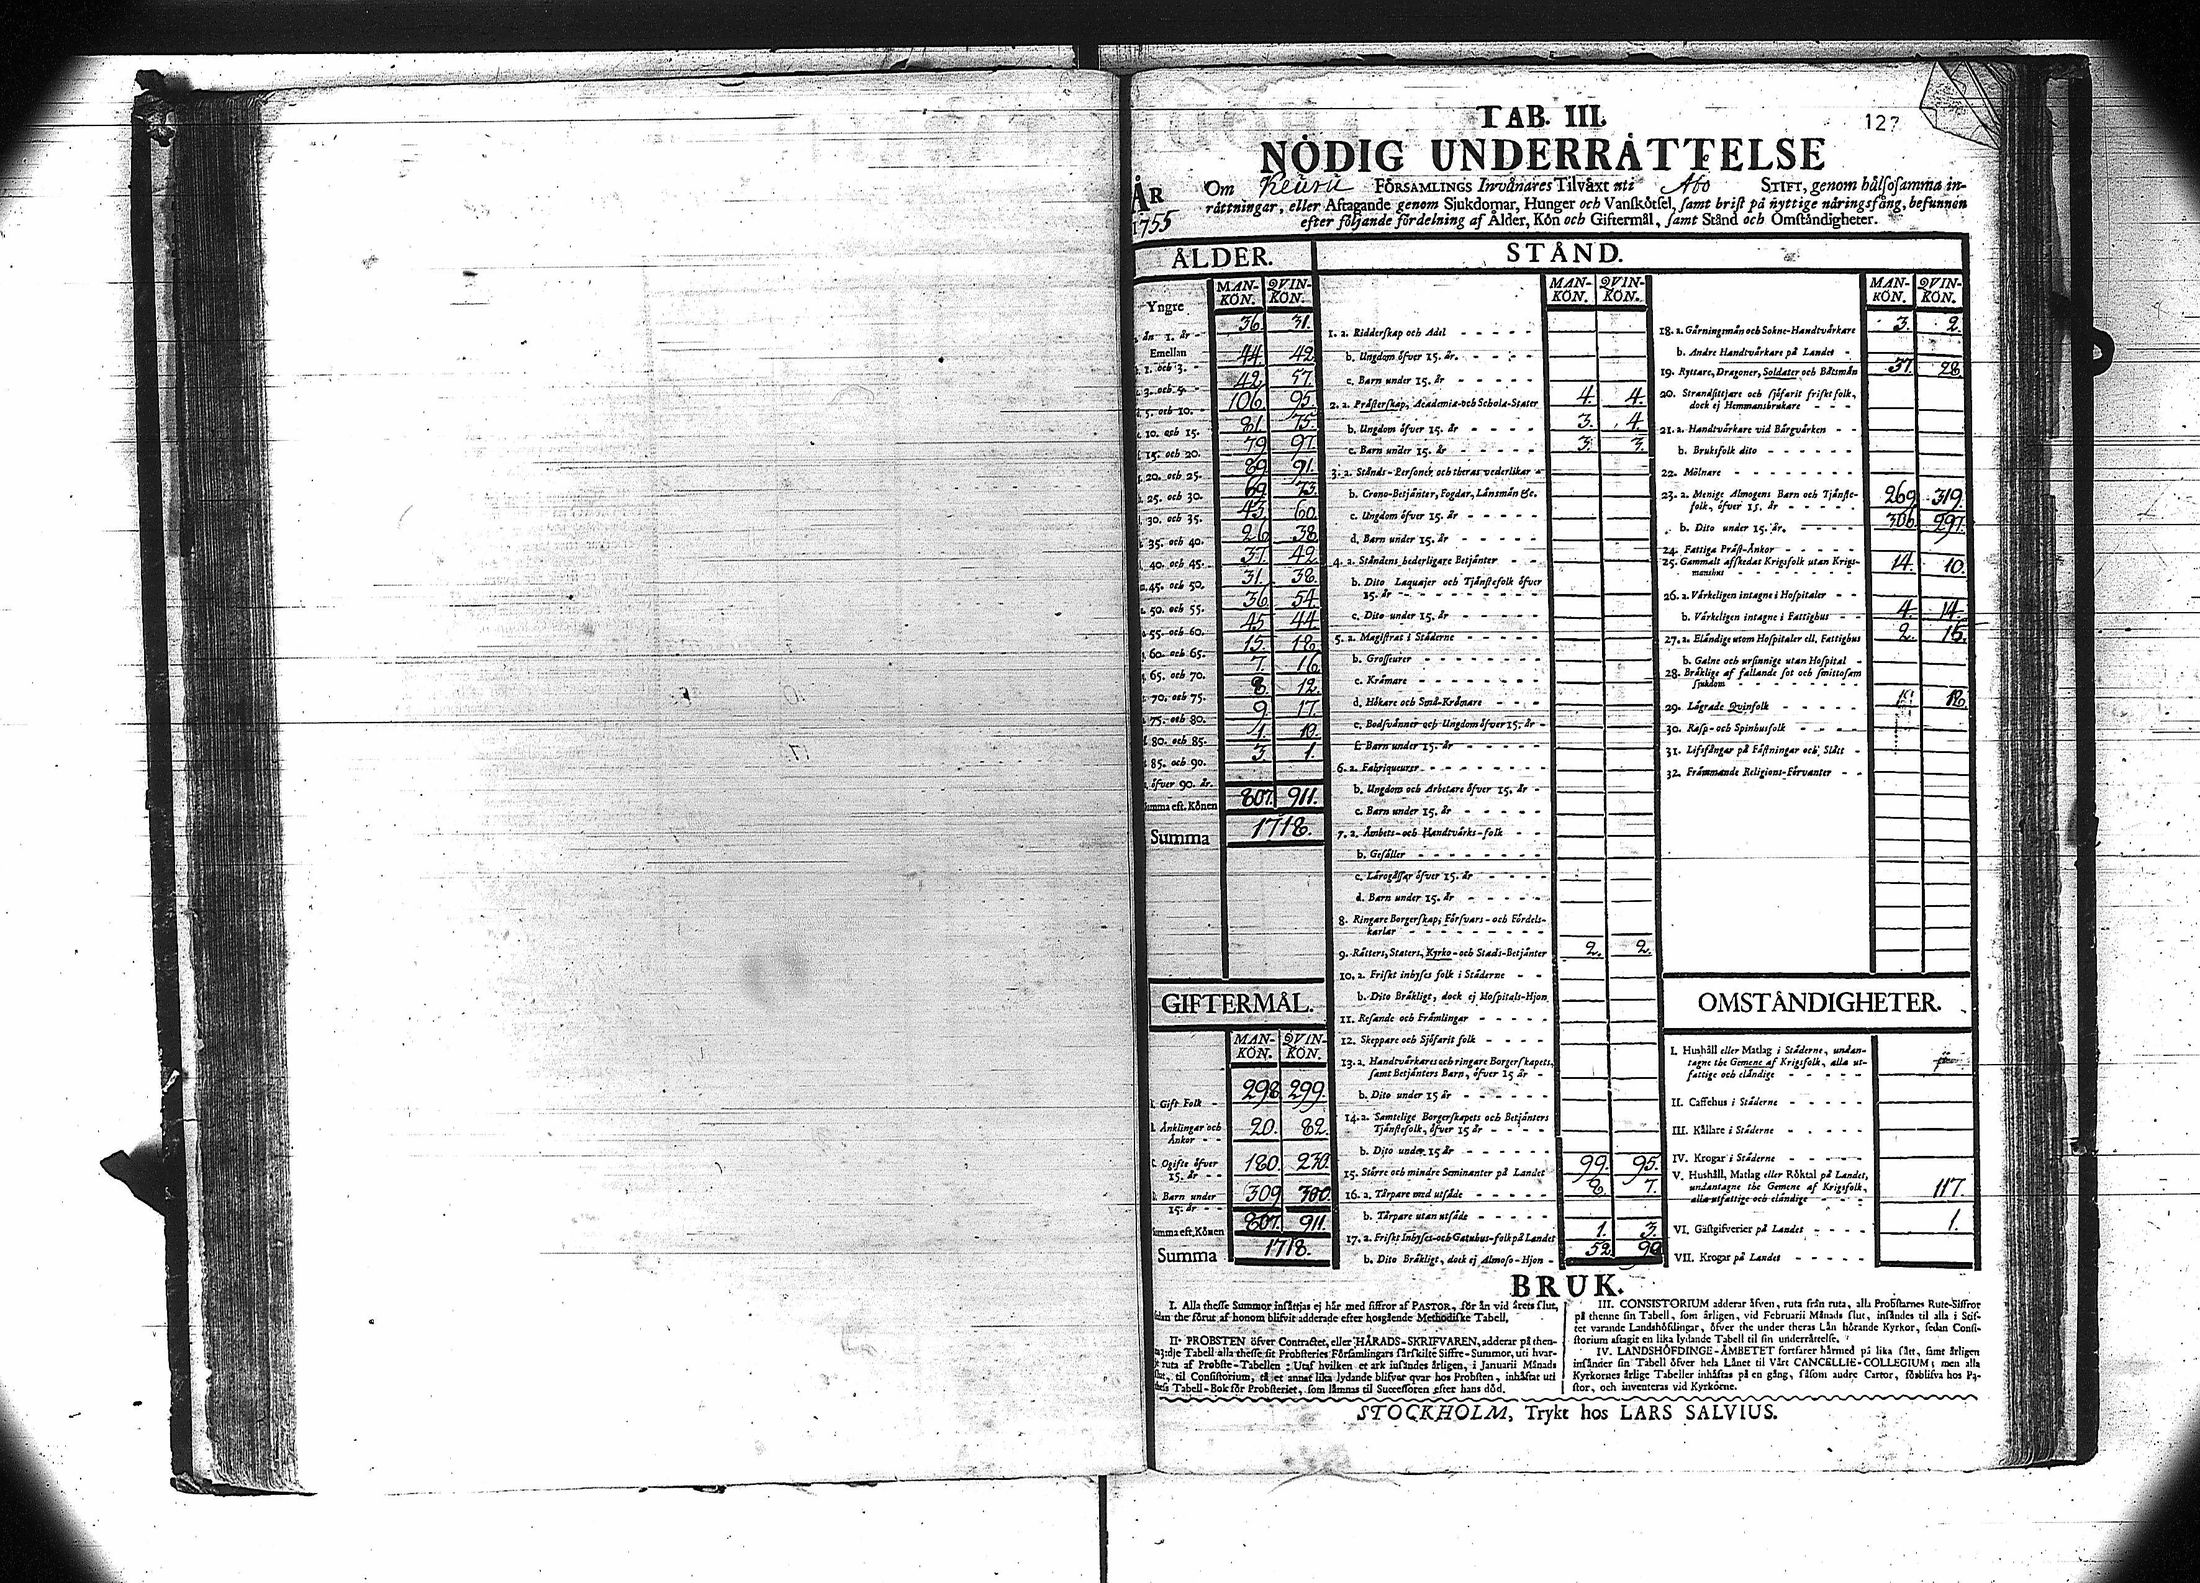 TAB. III.
127
NÖDIG UNDERRÄTTELSE
ÅR
1755
Om Keuru FÖRSAMLINGS Invånares Tilväxt uti Åbo STIFT, genom hälsosamma in-
rättningar, eller Aftagande genom Sjukdomar, Hunger och Vanskötsel, samt brist på nyttige näringsfång, befunnen
efter följande fördelning af Ålder, Kön och Giftermål, samt Stånd och Omständigheter.
ÅLDER.
MAN-KÖN. QVIN-KÖN.
Yngre
än 1. år - 36. 31.
Emellan
1. och 3. - 44 42
3. och 5. - 42 57.
5. och 10. - 106 95
10. och 15. 81 75.
15. och 20. 79 97.
20. och 25. 89 91.
25. och 30. 69 73.
30. och 35. 43 60
35. och 40. 26 38
40. och 45. 37. 42
45. och 50. 31. 38
50. och 55. 36 54
55. och 60. 45 44
60. och 65. 15. 18.
65. och 70. 7. 16
70. och 75. 8. 12.
75. och 80. 9 17.
80. och 85. 1. 10.
85. och 90. 3. 1.
öfver 90. år.
Summa eft. Könen 807. 911.
Summa 1718.
GIFTERMÅL.
MAN-KÖN. QVIN-KÖN.
Gift Folk - 298 299.
Änklingar och
Änkor - - 20. 82.
Ogifte öfver
15. år - - 180. 230.
Barn under
15. år - - 309 300.
Summa eft. Könen 807. 911.
Summa 1718.
STÅND.
MAN-KÖN. QVIN-KÖN.
1. a. Ridderskap och Adel - - - - -
b. Ungdom öfver 15. år. - - - -
c. Barn under 15. år - - - - -
2. a. Prästerskap, Academiæ-och Scholæ-Stater 4. 4.
b. Ungdom öfver 15. år - - - - 3. 4
c. Barn under 15. år - - - - - 3. 3.
3. a. Stånds-Personer och theras vederlikar -
b. Crono-Betjänter, Fogdar, Länsmän &c.
c. Ungdom öfver 15. år - - - -
d. Barn under 15. år - - - - -
4. a. Ståndens hederligare Betjänter - -
b. Dito Laquajer och Tjänstefolk öfver
15. år - - - - - - - -
c. Dito under 15. år - - - - -
5. a. Magistrat i Städerne - - - - -
b. Grosseurer - - - - - - -
c. Krämare - - - - - - -
d. Hökare och Små-Krämare - - - -
e. Bodsvänner och Ungdom öfver 15. år -
f. Barn under 15. år - - - - -
6. a. Fabriqueurer - - - - - - -
b. Ungdom och Arbetare öfver 15. år -
c. Barn under 15. år - - - - -
7. a. Ämbets-och Handtvärks-folk - -
b. Gesäller - - - - - - -
c. Lärogåssar öfver 15. år - - - -
d. Barn under 15. år - - - - -
8. Ringare Borgerskap, Försvars-och Fördels-
karlar - - - - - - - -
9. Rätters, Staters, Kyrko-och Stads-Betjänter 2. 2.
10. a. Friskt inhyses folk i Städerne - -
b. Dito Bräkligt, dock ej Hospitals-Hjon
11. Resande och Främlingar - - - - -
12. Skeppare och Sjöfarit folk - - - -
13. a. Handtvärkares och ringare Borgerskapets,
samt Betjänters Barn, öfver 15 år -
b. Dito under 15 år - - - - -
14. a. Samtelige Borgerskapets och Betjänters
Tjänstefolk, öfver 15 år - - - -
b. Dito under 15 år - - - - -
15. Större och mindre Heminanter på Landet 99. 95.
16. a. Tårpare med utsäde - - - - - 8. 7.
b. Tårpare utan utsäde - - - - -
17. a. Friskt Inhyses-och Gatuhus-folk på Landet 1. 3.
b. Dito Bräkligt, dock ej Almoso-Hjon - 52. 90
MAN-KÖN. QVIN-KÖN.
18. a. Gärningsmän och Sokne-Handtvärkare 3. 2.
b. Andre Handtvärkare på Landet -
19. Ryttare, Dragoner, Soldater och Båtsmän 37. 28
20. Strandsittjare och sjöfarit friskt folk,
dock ej Hemmansbrukare - - - -
21. a. Handtvärkare vid Bärgvärken - -
b. Bruksfolk dito - - - - - -
22. Mölnare - - - - - - - -
23. a. Menige Almogens Barn och Tjänste-
folk, öfver 15. år - - - - - 269 319.
b. Dito under 15. år. - - - - - 306 297.
24. Fattiga Präst-Änkor - - - - -
25. Gammalt afskedat Krigsfolk utan Krigs-
manshus - - - - - - - 14. 10.
26. a. Värkeligen intagne i Hospitaler - -
b. Värkeligen intagne i Fattighus - - 4. 14.
27. a. Eländige utom Hospitaler ell. Fattighus 2. 15.
b. Galne och ursinnige utan Hospital -
28. Bräklige af fallande sot och smittosam
sjukdom - - - - - - - -
29. Lägrade Qvinfolk - - - - - 18.
30. Rasp-och Spinhusfolk - - - -
31. Lifsfångar på Fästningar och Slått -
32. Främmande Religions-Förvanter - -
OMSTÄNDIGHETER.
I. Hushåll eller Matlag i Städerne, undan-
tagne the Gemene af Krigsfolk, alla ut-
fattige och eländige - - - - -
II. Caffehus i Städerne - - - - -
III. Källare i Städerne - - - - -
IV. Krogar i Städerne - - - - -
V. Hushåll, Matlag eller Röktal på Landet,
undantagne the Gemene af Krigsfolk,
alla utfattige och eländige - - - 117.
VI. Gästgifverier på Landet - - - - 1.
VII. Krogar på Landet - - - - -
BRUK.
I. Alla thesse Summor insättjas ej här med siffror af PASTOR, för än vid årets slut,
sedan the förut af honom blifvit adderade efter hosgående Methodiske Tabell,
II. PROBSTEN öfver Contractet, eller HÄRADS-SKRIFVAREN, adderar på then-
na 3:dje Tabell alla thesse sit Probsteries Församlingars särskilte Siffre-Summor, uti hvar-
t ruta af Probste-Tabellen: Utaf hvilken et ark insändes årligen, i Januarii Månads
slut, til Consistorium, tå et annat lika lydande blifver qvar hos Probsten, inhäftat uti
thess Tabell-Bok för Probsteriet, som lämnas til Successoren efter hans död.
III. CONSISTORIUM adderar äfven, ruta från ruta, alla Probstarnes Rute-Siffror
på thenne sin Tabell, som årligen, vid Februarii Månads slut, insändes til alla i Stif-
tet varande Landshöfdingar, öfver the under theras Län hörande Kyrkor, sedan Consi-
storium aftagit en lika lydande Tabell til sin underrättelse.
IV. LANDSHÖFDINGE-ÄMBETET fortfarer härmed på lika sätt, samt årligen
insänder sin Tabell öfver hela Länet til Vårt CANCELLIE-COLLEGIUM; men alla
Kyrkornes årlige Tabeller inhäftas på en gång, såsom andre Cartor, så blifva hos Pa-
stor, och inventeras vid Kyrkorne.
STOCKHOLM, Trykt hos LARS SALVIUS.